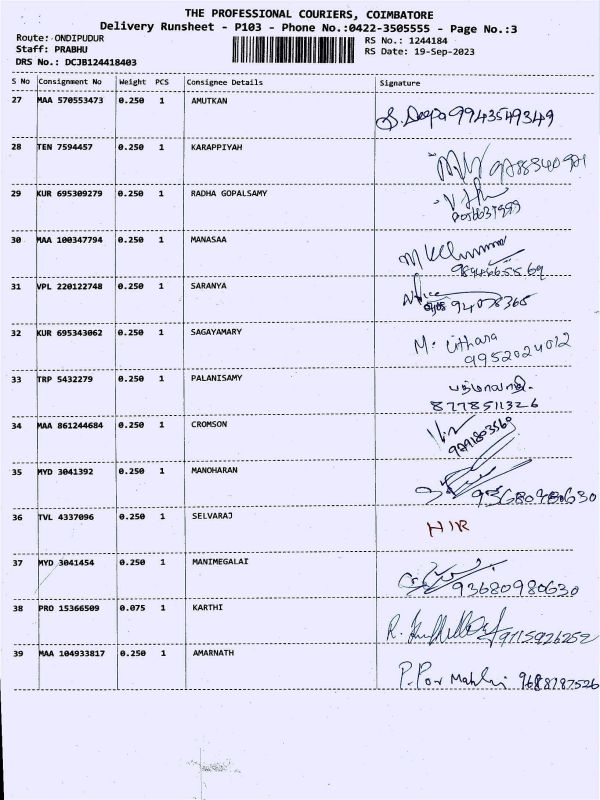 THE PROFESSIONAL COURIERS, COIMBATORE
Delivery Runsheet - P103 - Phone No.:0422-3505555 - Page No.:3
Route: ONDIPUDUR RS No.: 1244184
Staff: PRABHU RS Date: 19-Sep-2023
DRS No.: DCJB124418403
S No Consignment No Weight PCS Consignee Details Signature
27 MAA 570553473 0.250 1 AMUTKAN
S. Deepa 9943549349
28 TEN 7594457 0.250 1 KARAPPIYAH
29 KUR 695309279 0.250 1 RADHA GOPALSAMY
30 MAA 100347794 0.250 1 MANASAA
31 VPL 220122748 0.250 1 SARANYA
32 KUR 695343062 0.250 1 SAGAYAMARY
M. Uthara
9952024012
33 TRP 5432279 0.250 1 PALANISAMY
8778511326
34 MAA 861244684 0.250 1 CROMSON
35 MYD 3041392 0.250 1 MANOHARAN
93680980630
36 TVL 4337096 0.250 1 SELVARAJ
HIR
37 MYD 3041454 0.250 1 MANIMEGALAI
93680980630
38 PRO 15366509 0.075 1 KARTHI
9715926252
39 MAA 104933817 0.250 1 AMARNATH